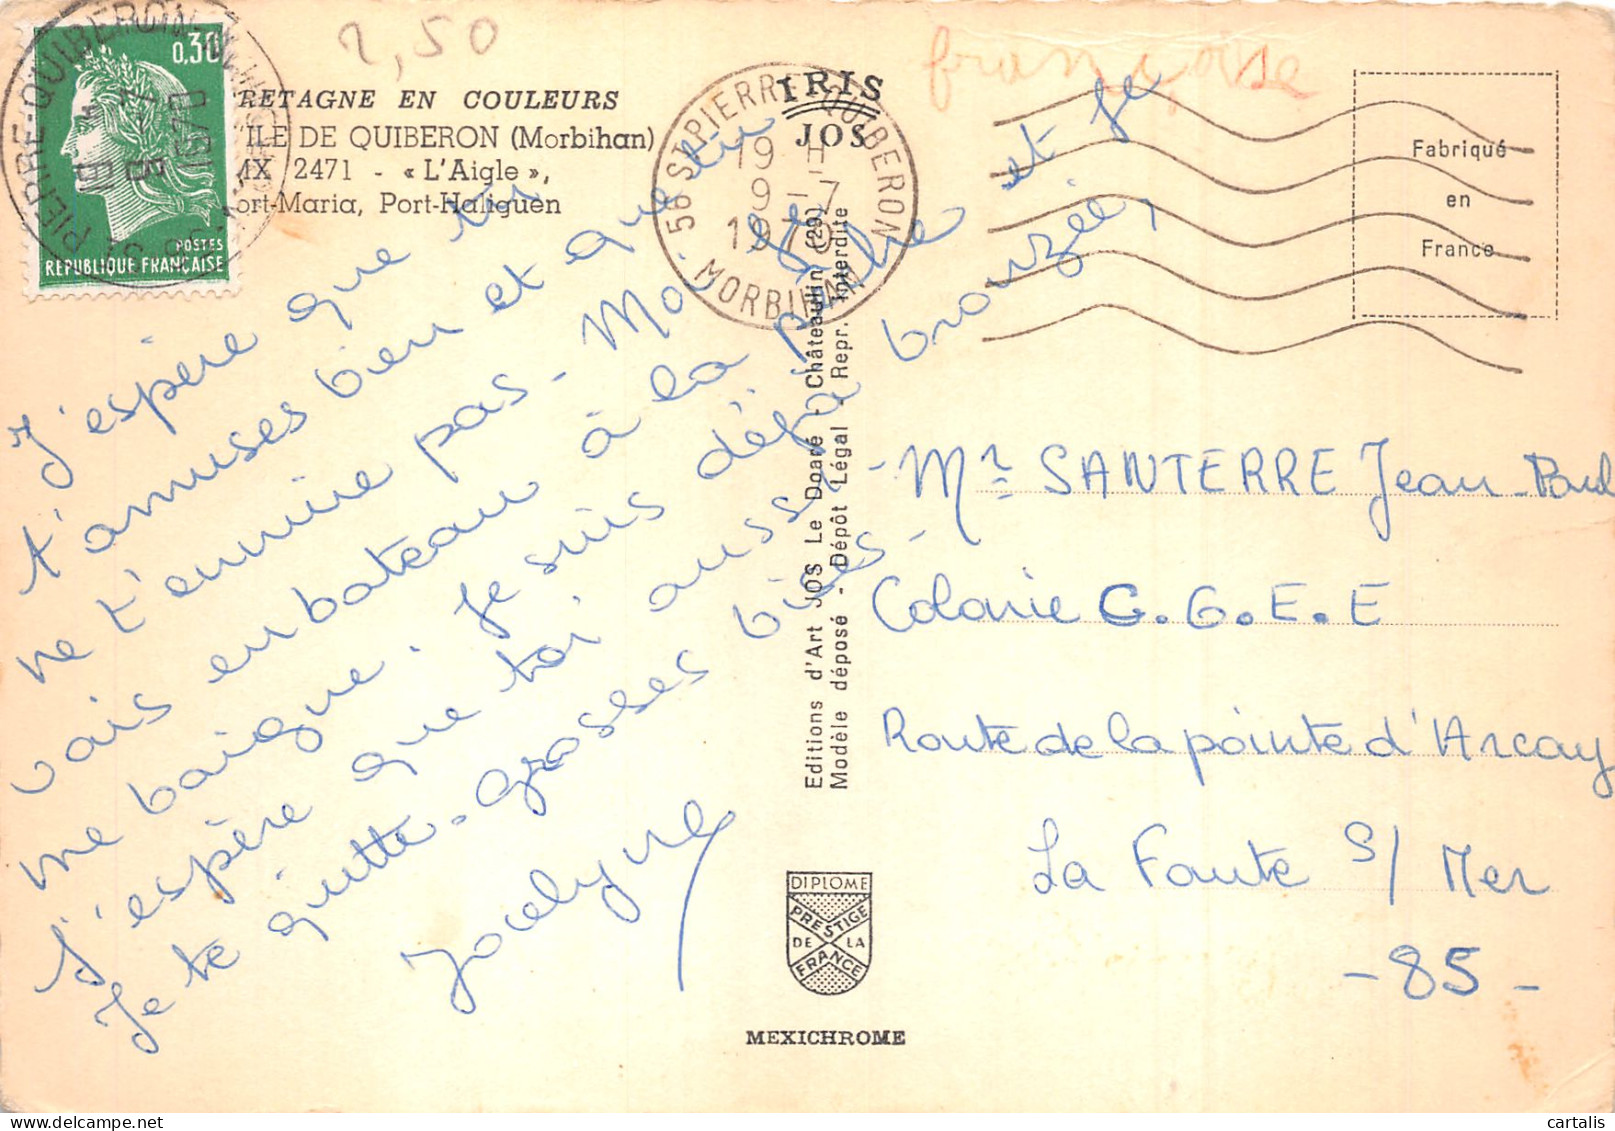 2,50
française
0,30
POSTES
REPUBLIQUE FRANÇAISE
RETAGNE EN COULEURS
ILE DE QUIBERON (Morbihan)
MX 2471 - « L'Aigle »,
ort-Maria, Port-Haliguen
IRIS
JOS
56 ST PIERRE QUIBERON
19 H
9 - 7
1970
MORBIHAN
Fabriqué
en
France
J'espère que tu
t'amuses bien et que tu
ne t'ennuie pas - Moi je
vais en bateau à la pêche et je
me baigne. Je suis déjà bronzée,
J'espère que toi aussi -
Je te quitte - grosses bises -
Jocelyne
Editions d'Art JOS Le Doaré - Châteaulin (29)
Modèle déposé - Dépôt Légal - Repr. Interdite
- Mr SANTERRE Jean-Paul
Colonie C.G.E.E
Route de la pointe d'Arcay
La Faute s/ Mer
- 85 -
DIPLOME
PRESTIGE
DE LA
FRANCE
MEXICHROME
cartalis